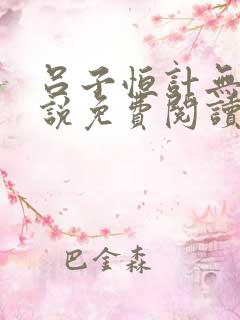 呂子恒計無
說免費閱讀
巴金森